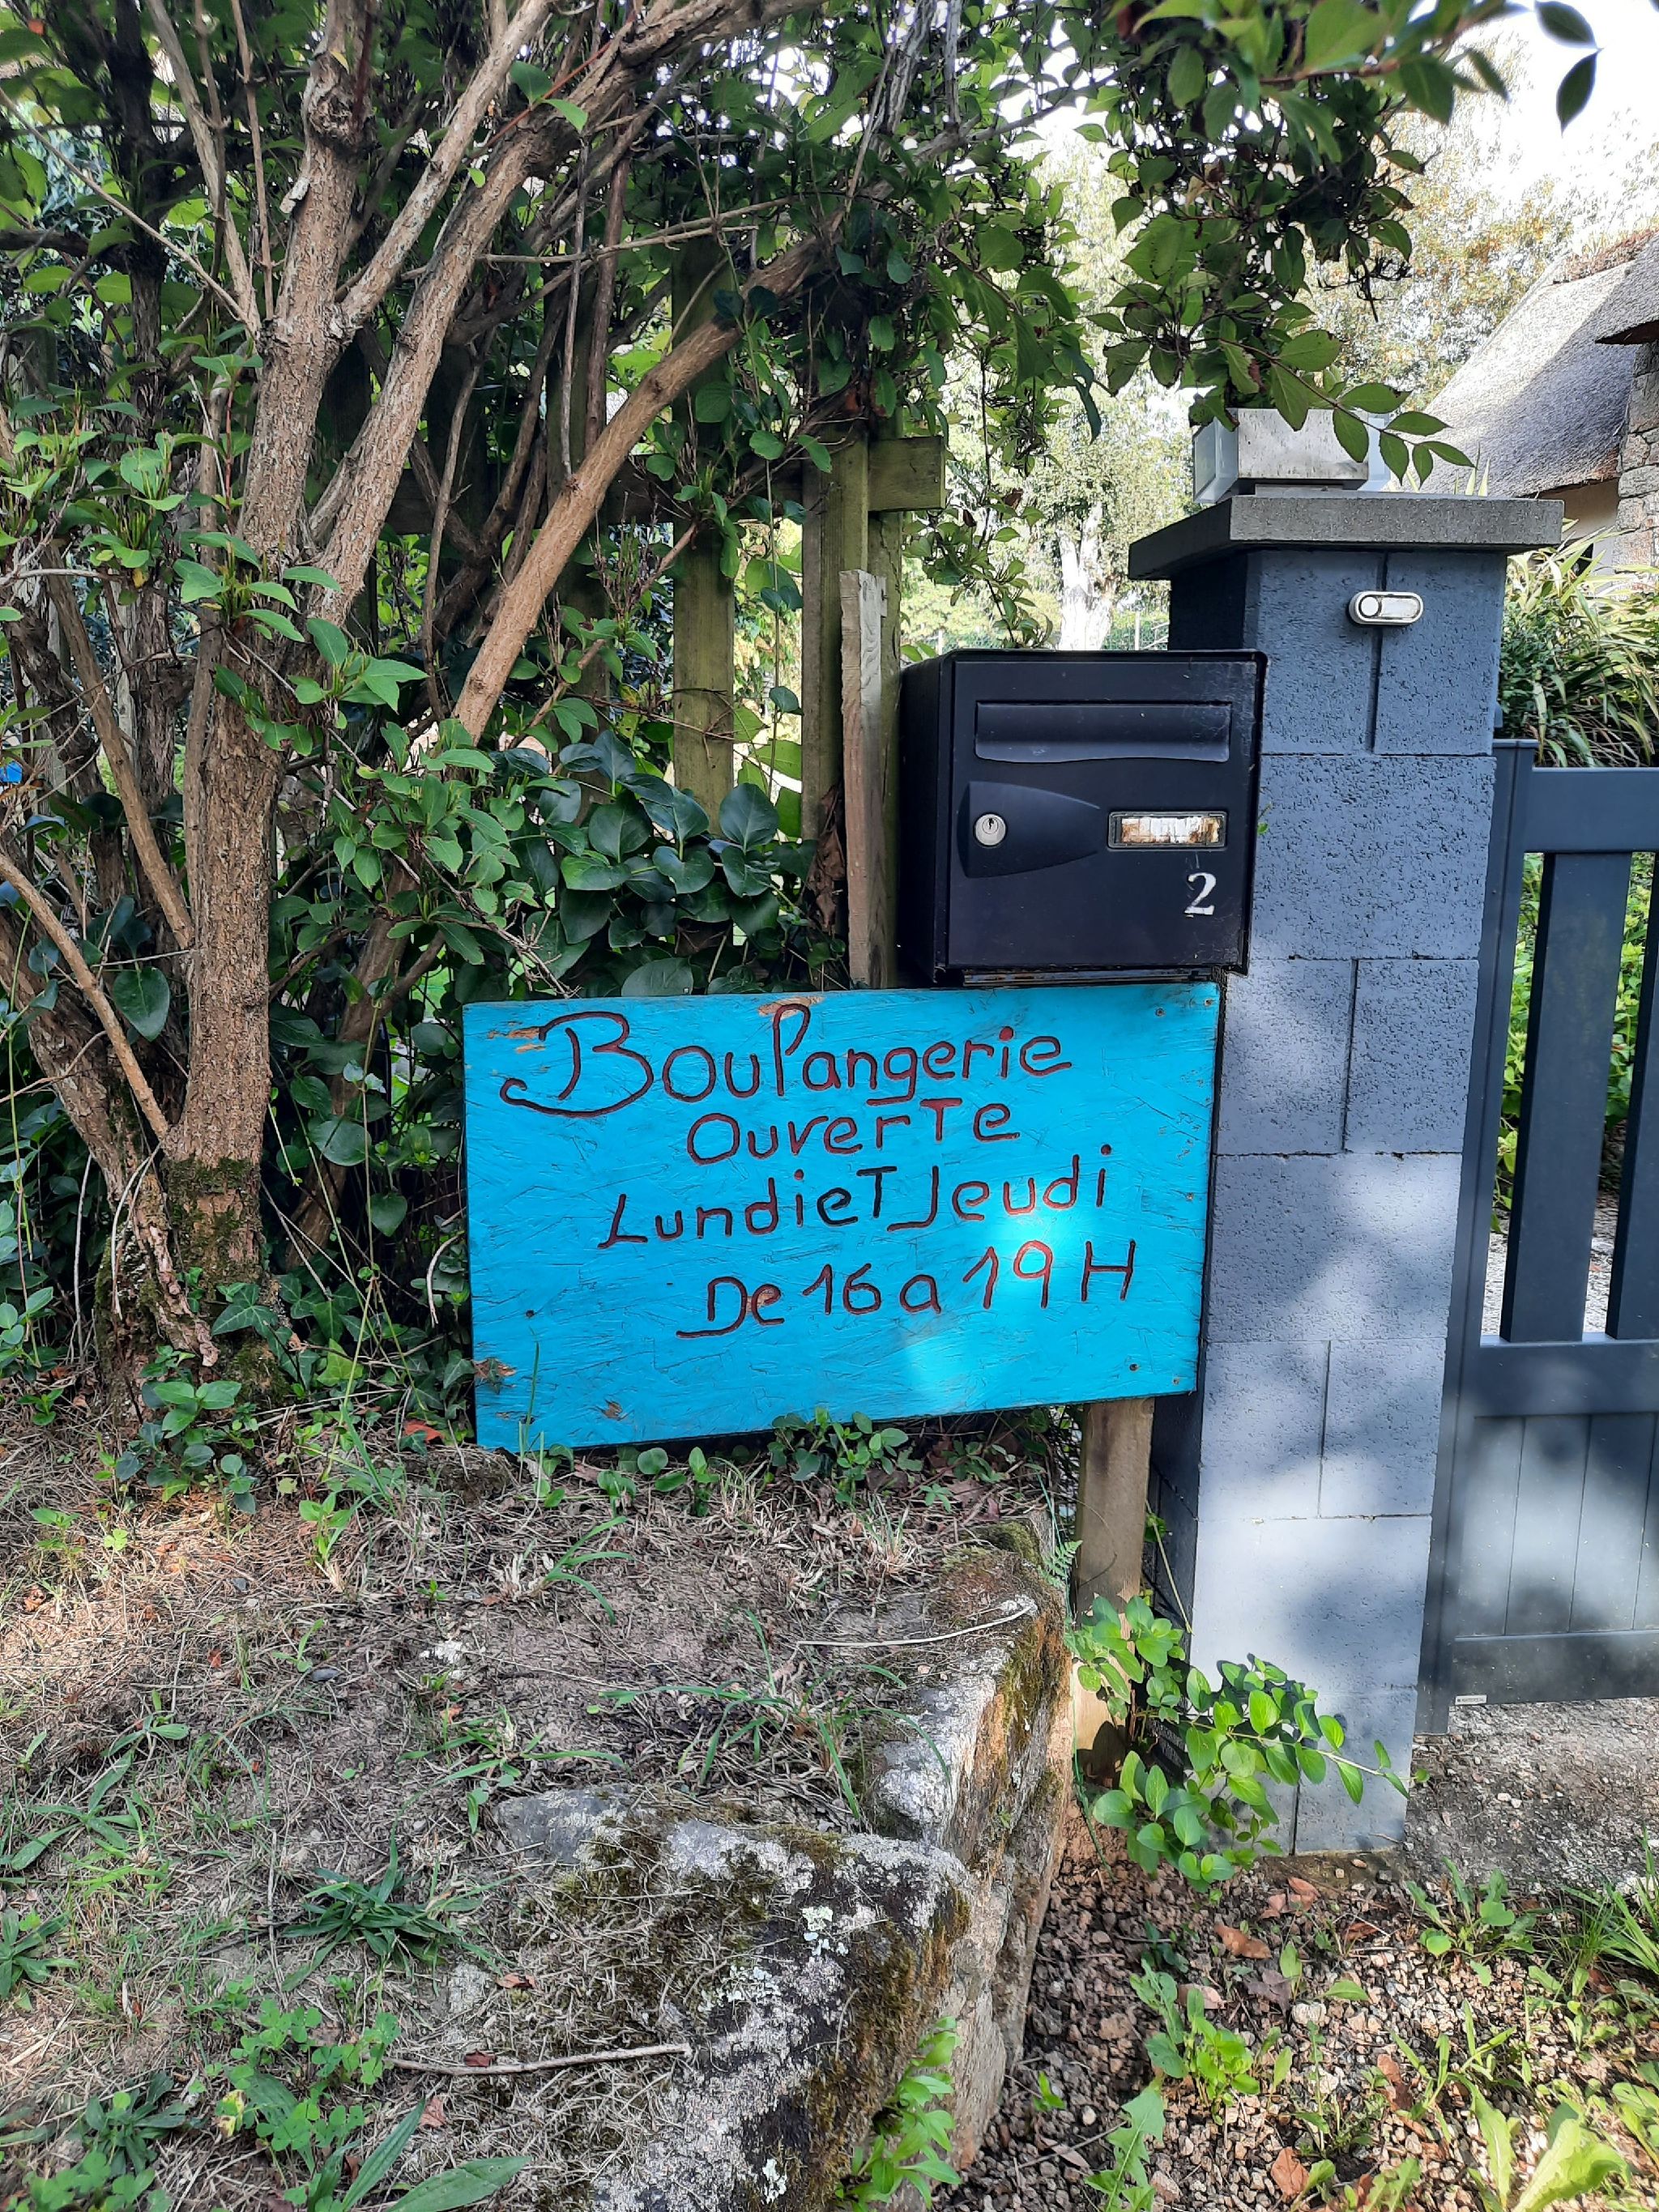 2
Boulangerie
Ouverte
Lundi eT Jeudi
De 16 a 19 H